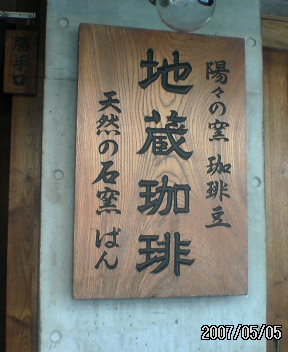 陽々の窯 珈琲豆
地蔵珈琲
天然の石窯 ぱん
勝手口
2007/05/05